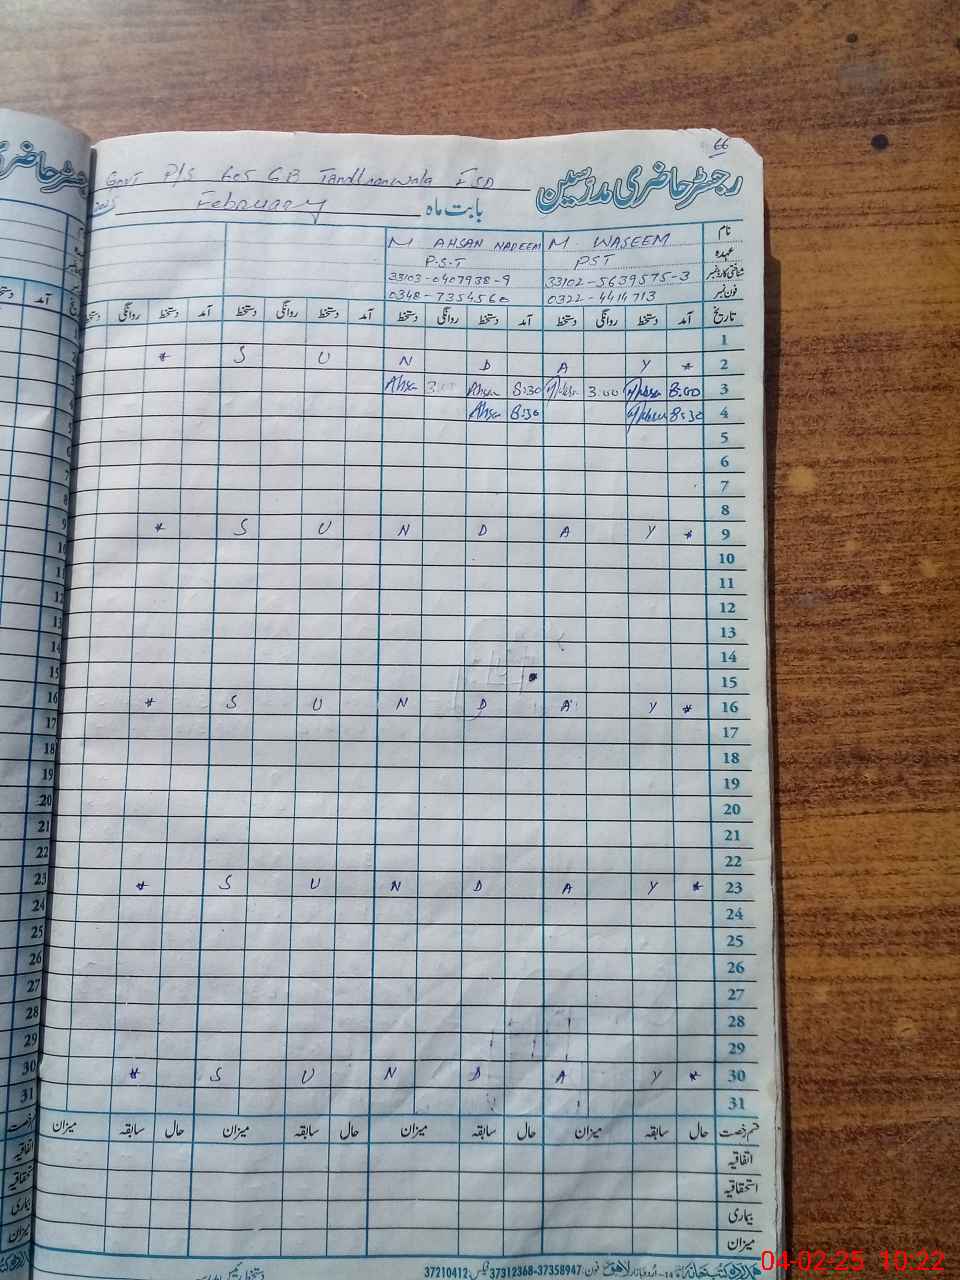 66
رجسٹر حاضری مدرسین
Govt P/S 605 GB Tandlianwala FSD
بابت ماہ February 2025
نام M. WASEEM M AHSAN NADEEM
عہدہ PST P.S.T
شناختی کارڈ نمبر 33102-5639575-3 33103-0407938-9
فون نمبر 0322-4414713 0348-7354560
تاریخ آمد دستخط روانگی دستخط آمد دستخط روانگی دستخط آمد دستخط روانگی دستخط آمد دستخط روانگی دستخط
1
2 * S U N D A Y *
3 8:00 3:00 8:30 Ahsan 3:00 Ahsan
4 8:30 8:30 Ahsan
5
6
7
8
9 * S U N D A Y *
10
11
12
13
14
15
16 * S U N D A Y *
17
18
19
20
21
22
23 * S U N D A Y *
24
25
26
27
28
29
30 * S U N D A Y *
31
قسم رخصت حال سابقہ میزان حال سابقہ میزان حال سابقہ میزان حال سابقہ میزان
اتفاقیہ
استحقاقیہ
بیماری
میزان
اردو بازار لاہور فون: 37358947-37312368 فیکس: 37210412
04-02-25 10:22